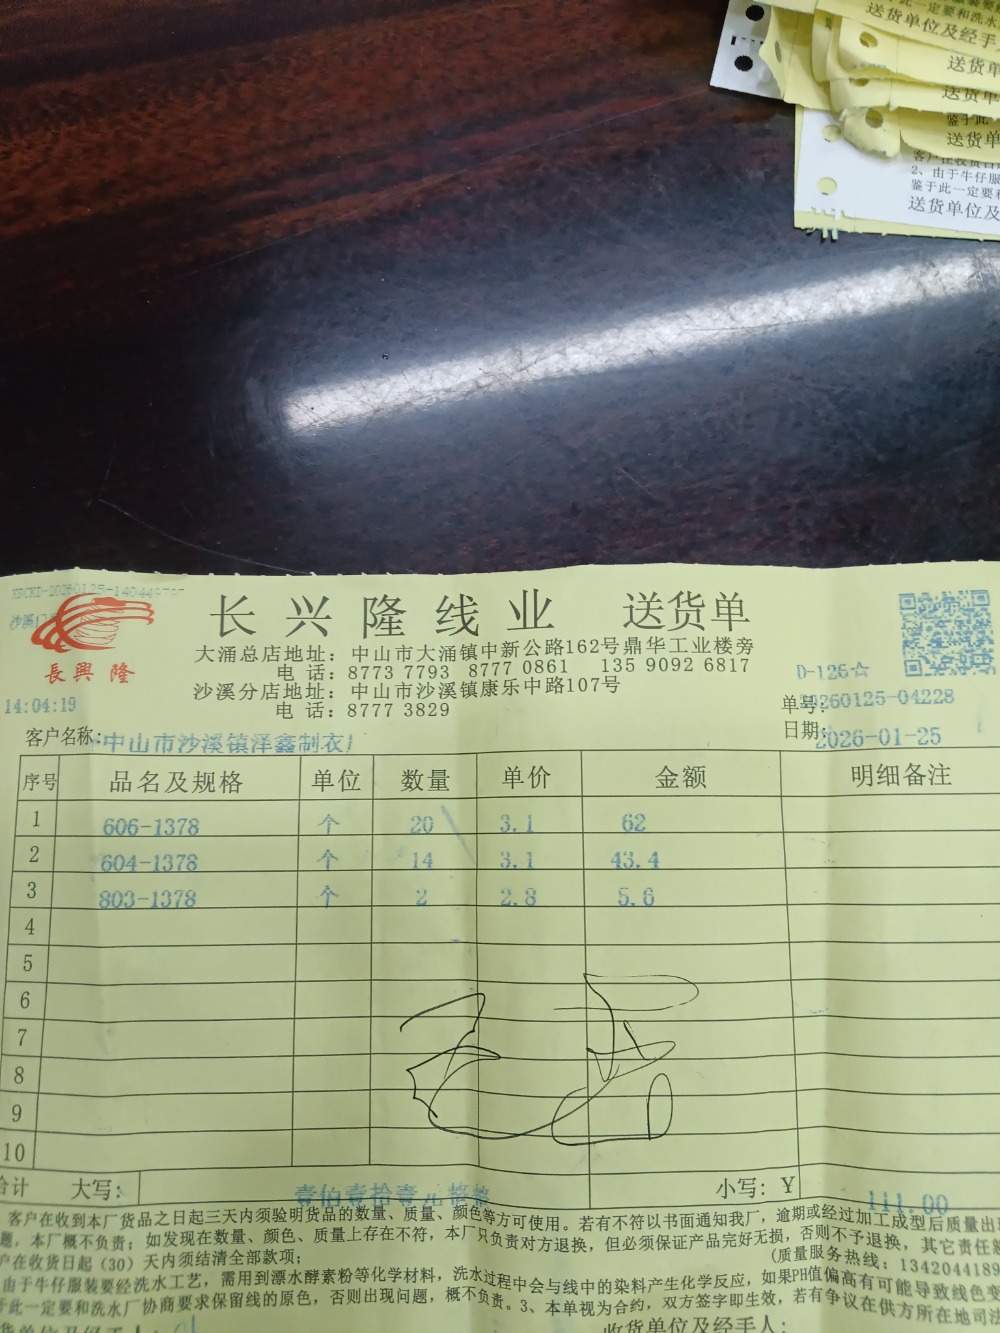 此一定要和洗水
送货单位及经手
送货单
送货单
鉴于此一
送货单
客户在收货日
2、由于牛仔服
鉴于此一定要和
送货单位及
XSCKD-20260125-140449
沙溪
長興隆
14:04:19
长兴隆线业 送货单
大涌总店地址：中山市大涌镇中新公路162号鼎华工业楼旁
电 话：8773 7793 8777 0861 135 9092 6817
沙溪分店地址：中山市沙溪镇康乐中路107号
电 话：8777 3829
D-126☆
单号：20260125-04228
日期：2026-01-25
客户名称：中山市沙溪镇泽鑫制衣厂
序号 品名及规格 单位 数量 单价 金额 明细备注
1 606-1378 个 20 3.1 62
2 604-1378 个 14 3.1 43.4
3 803-1378 个 2 2.8 5.6
4
5
6
7
8
9
10
合计 大写：壹佰壹拾壹元整 小写：Y 111.00
客户在收到本厂货品之日起三天内须验明货品的数量、质量、颜色等方可使用。若有不符以书面通知我厂，逾期或经过加工成型后质量出现
题，本厂概不负责；如发现在数量、颜色、质量上存在不符，本厂只负责对方退换，但必须保证产品完好无损，否则不予退换，其它责任
户在收货日起（30）天内须结清全部款项； (质量服务热线：1342044189
由于牛仔服装要经洗水工艺，需用到漂水酵素粉等化学材料，洗水过程中会与线中的染料产生化学反应，如果PH值偏高有可能导致线色变
于此一定要和洗水厂协商要求保留线的原色，否则出现问题，概不负责。3、本单视为合约，双方签字即生效，若有争议在供方所在地司法
货单位及经手人： 收货单位及经手人：